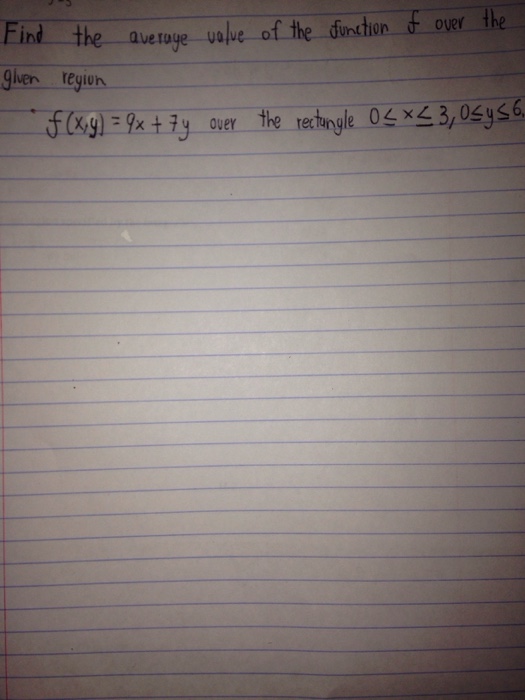 Find the average value of the function f over the
given region
f(x,y) = 9x + 7y over the rectangle 0 ≤ x ≤ 3, 0≤y≤6.